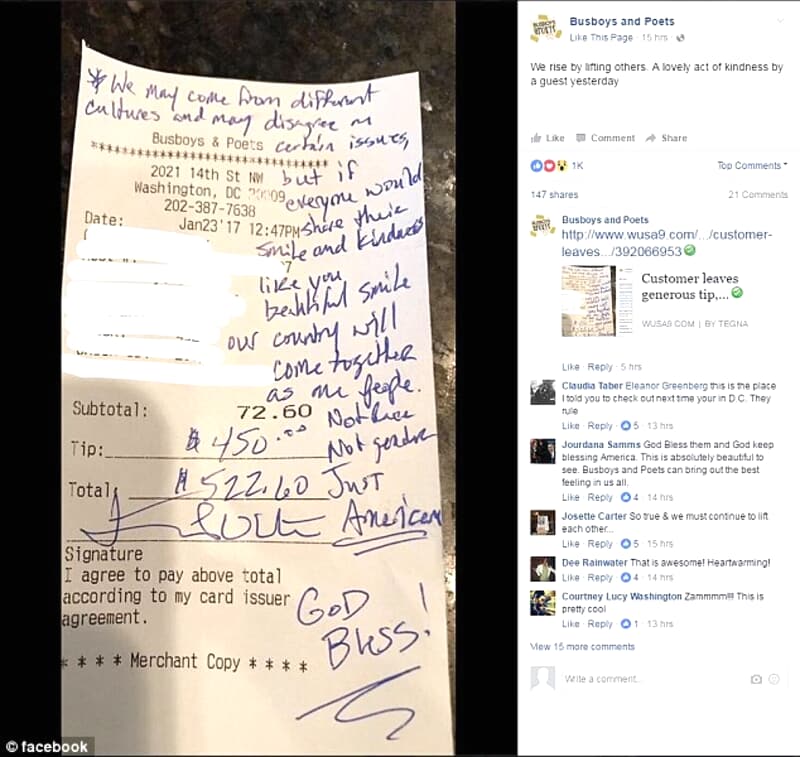 * We may come from different
cultures and may disagree on
certain issues,
Busboys & Poets
************************************
2021 14th St NW
but if
Washington, DC
everyone would
202-387-7638
share their
Date: Jan23'17 12:47PM
smile and kindness
7
like you
beautiful smile
our country will
come together
as one people.
Subtotal: 72.60
Not race
Tip: $ 450.00
Not gender
Total: $ 522.60
Just
American
Signature
I agree to pay above total
according to my card issuer
agreement.
GOD
Bless!
* * * * Merchant Copy * * * *
© facebook
Busboys and Poets
Like This Page · 15 hrs ·
We rise by lifting others. A lovely act of kindness by
a guest yesterday
Like Comment Share
1K Top Comments
147 shares 21 Comments
Busboys and Poets
http://www.wusa9.com/.../customer-
leaves.../392066953
Customer leaves
generous tip,...
WUSA9.COM | BY TEGNA
Like · Reply · 5 hrs
Claudia Taber Eleanor Greenberg this is the place
I told you to check out next time your in D.C. They
rule
Like · Reply · 5 · 13 hrs
Jourdana Samms God Bless them and God keep
blessing America. This is absolutely beautiful to
see. Busboys and Poets can bring out the best
feeling in us all.
Like · Reply · 4 · 14 hrs
Josette Carter So true & we must continue to lift
each other...
Like · Reply · 5 · 15 hrs
Dee Rainwater That is awesome! Heartwarming!
Like · Reply · 4 · 14 hrs
Courtney Lucy Washington Zammmm!!! This is
pretty cool
Like · Reply · 1 · 13 hrs
View 15 more comments
Write a comment...